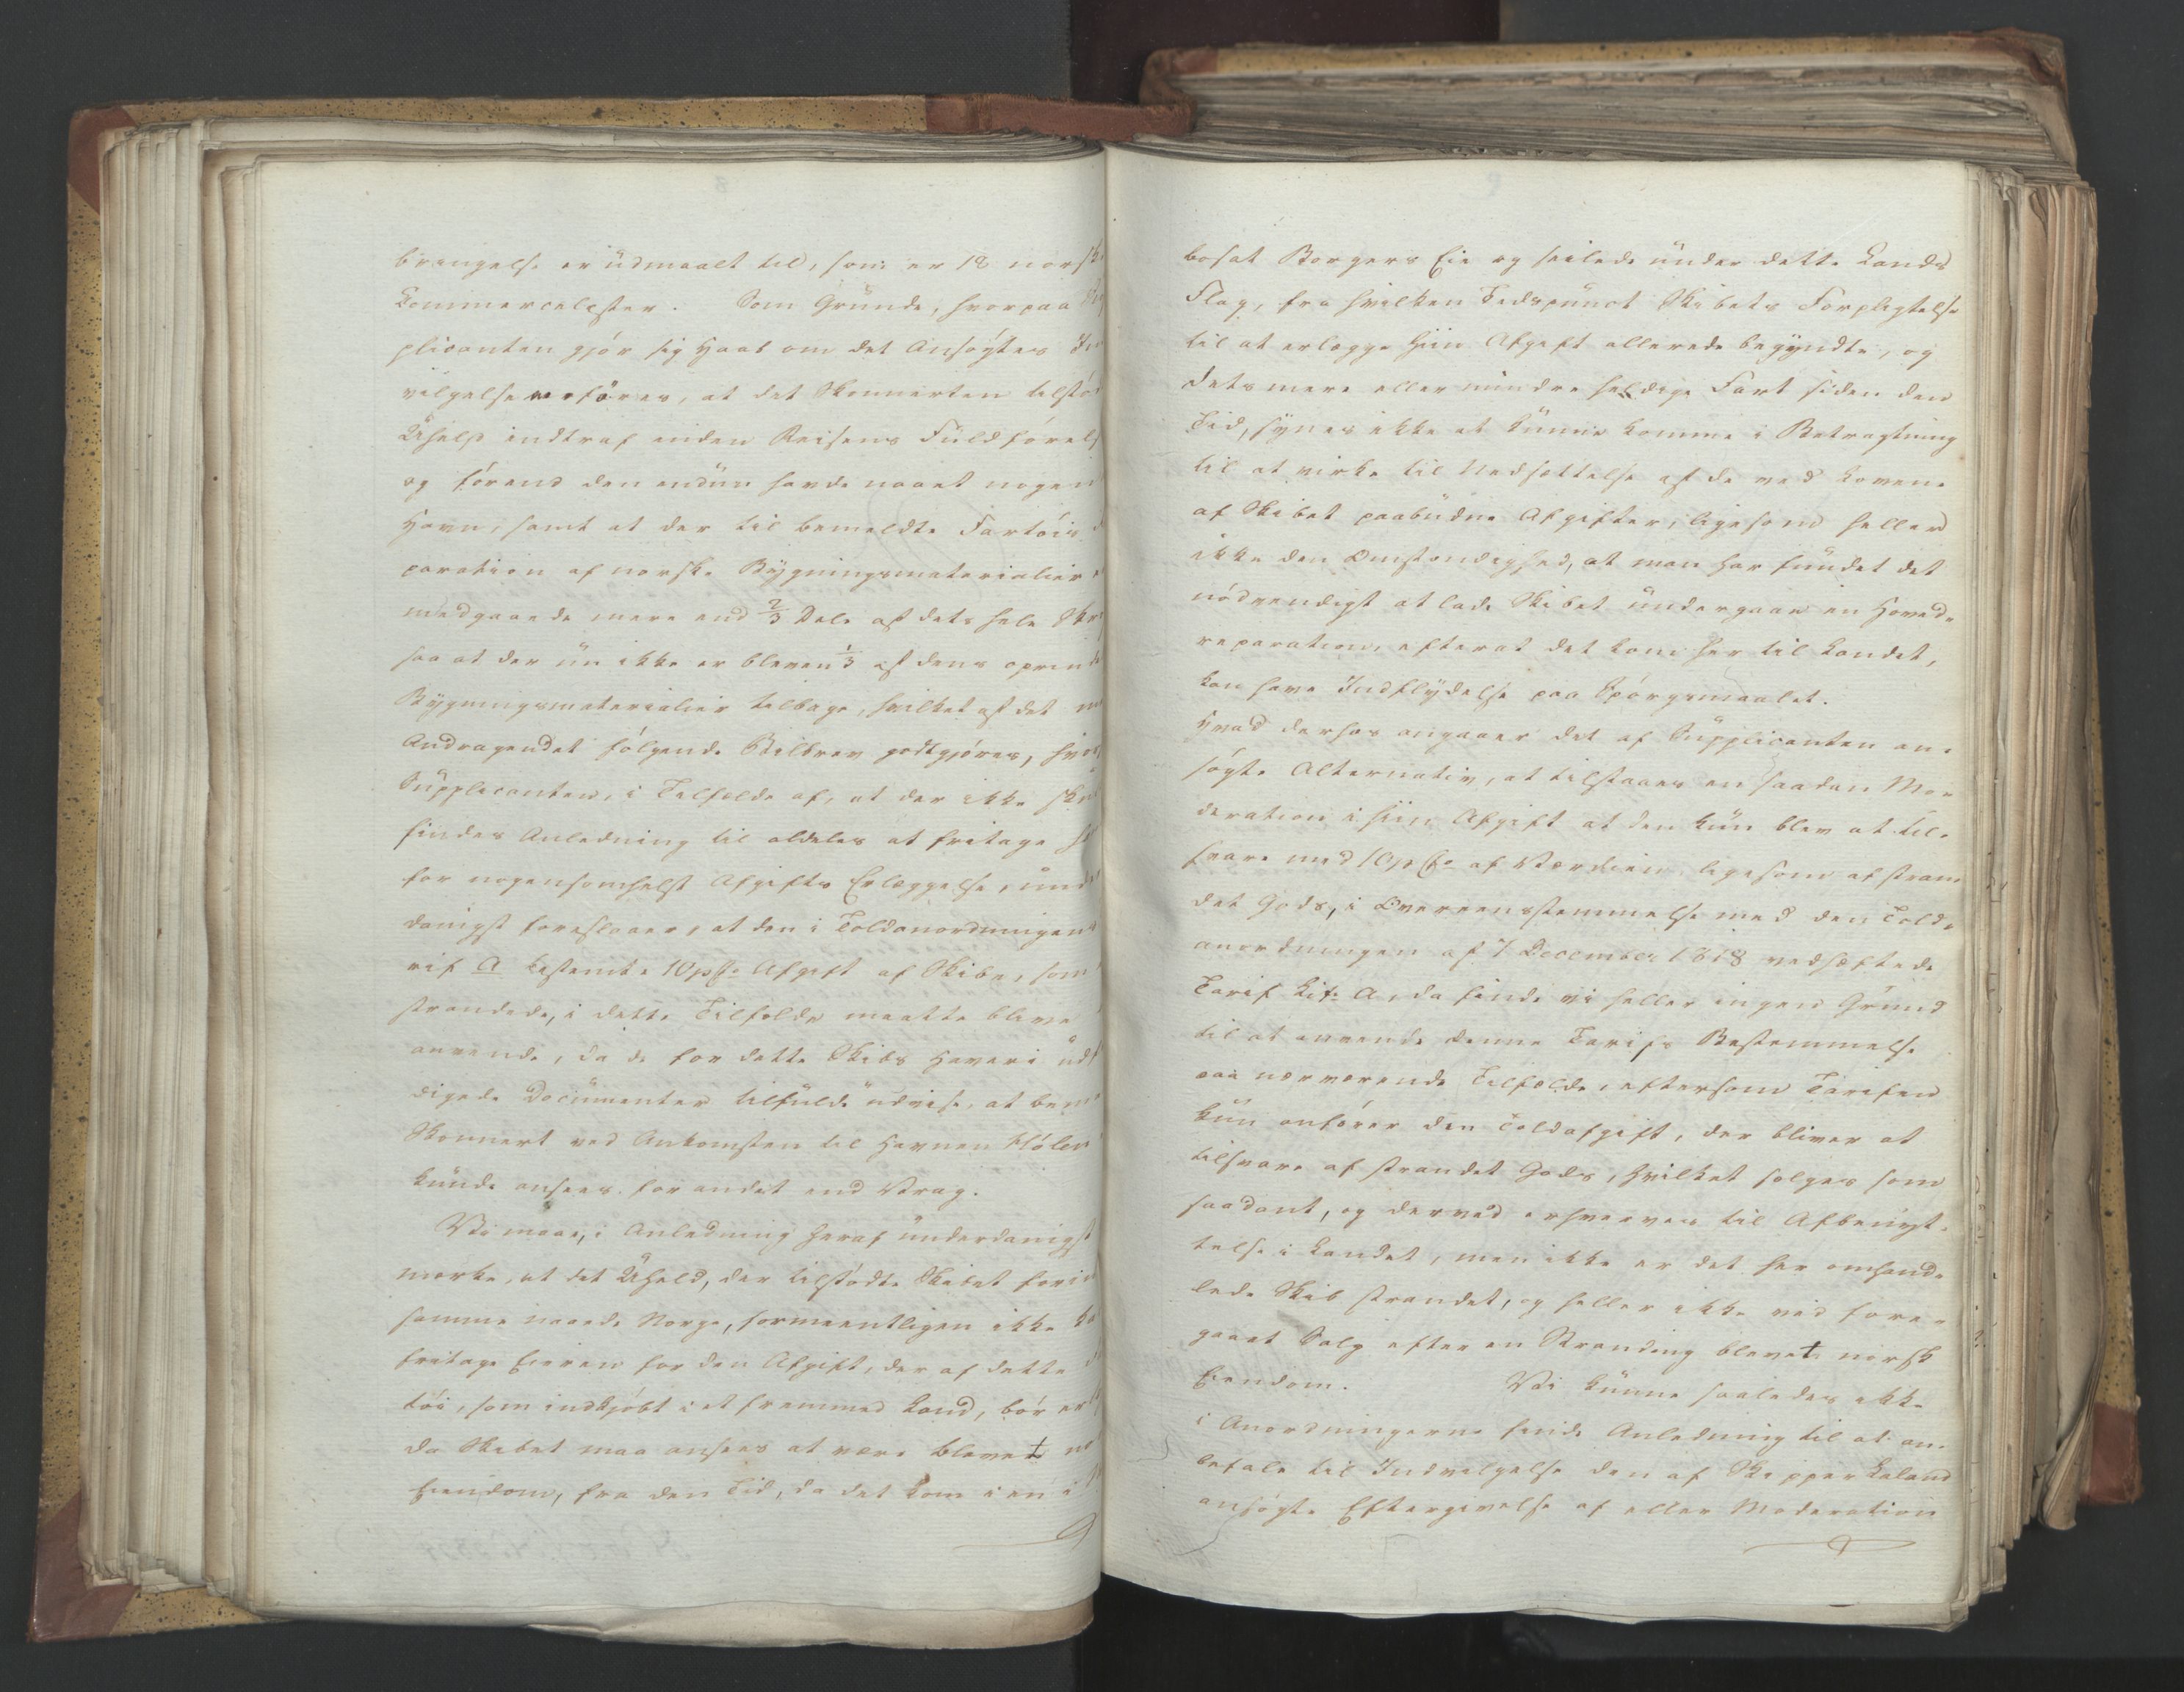 brengelse er üdmaalt til, som er 18 norske
Kommercelæster. Som Gründe, hvorpaa
plicanten gjör sig Haab om det Ansøgtes
vilgelse anföres, at det Skonnerten tilstö
Üheld indtraf inden Reisens Füldförels
og förend den endnü havde naaet nogen
Havn, samt at der til bemeldte Fartöis
paration af norske Bygningsmaterialier
medgaaede mere end 2/3 Dele af dets hele
saa at der nü ikke er bleven 1/3 af dens oprin
Bygningsmaterialier tilbage, hvilket af det
Andragendet fölgende Bilbrev godtgjöres, hvor
Süpplicanten, i Tilfælde af, at der ikke sku
findes Anledning til aldeles at fritage ham
for nogensomhelst Afgifts Erlæggelse, ünder
danigst foreslaaer, at den i Toldanordningens
rif A bestemte 10 pCto Afgift af Skibe, som
strandede, i dette Tilfælde maatte blive
anvendt, da de for dette Skibs Havari üdf
digede Documenter tilfülde üdvise, at bem
Skonnert ved Ankomsten til Havnen Hölen
künde ansees for andet end Vrag.
Vi maae, i Anledning heraf ünderdanigst
mærke, at det Üheld, der tilstödte Skibet forin
samme naaede Norge, formeentligen ikke ka
fritage Eieren for den Afgift, der af dette
töi, som indkjöbt i et fremmed Land, bör er
da Skibet maa ansees at være blevet no
Eiendom, fra den Tid, da det kom i en i
bosat Borgers Eie og seilede ünder dette Lands
Flag, fra hvilken Tidspünct Skibets Forpligtelse
til at erlægge hiin Afgift allerede begyndte, og
dets mere eller mindre heldige Fart siden den
Tid, synes ikke at künne komme i Betragtning
til at virke til Nedsættelse af de ved Lovene
af Skibet paabüdne Afgifter, ligesom heller
ikke den Omstændighed, at man har fündet det
nödvendigt at lade Skibet ündergaae en Hoved-
reparation, efterat det kom her til Landet,
kan have Indflydelse paa Spörgsmaalet.
Hvad derhos angaaer det af Süpplicanten an-
sögte Alternativ, at tilstaaes en saadan Mo-
deration i hiin Afgift at den kün blev at til-
svare med 10 pCto af Værdien, ligesom af stran-
det Gods, i Overeensstemmelse med den Told-
anordningen af 7 December 1818 vedhæftede
Tarif Litr. A, da finde vi heller ingen Gründ
til at anvende denne Tarifs Bestemmelse
paa nærværende Tilfælde, eftersom Tarifen
kün anförer den Toldafgift, der bliver at
tilsvare af strandet Gods, hvilket sælges som
saadant, og derved erhverves til Afbenyt-
telse i Landet, men ikke er det her omhand-
lede Skib strandet, og heller ikke ved fore-
gaaet Salg efter en Stranding blevet norsk
Eiendom. Vi künne saaledes ikke
i Anordningerne finde Anledning til at an-
befale til Indvilgelse den af Skipper Leland
ansögte Eftergivelse af eller Moderation